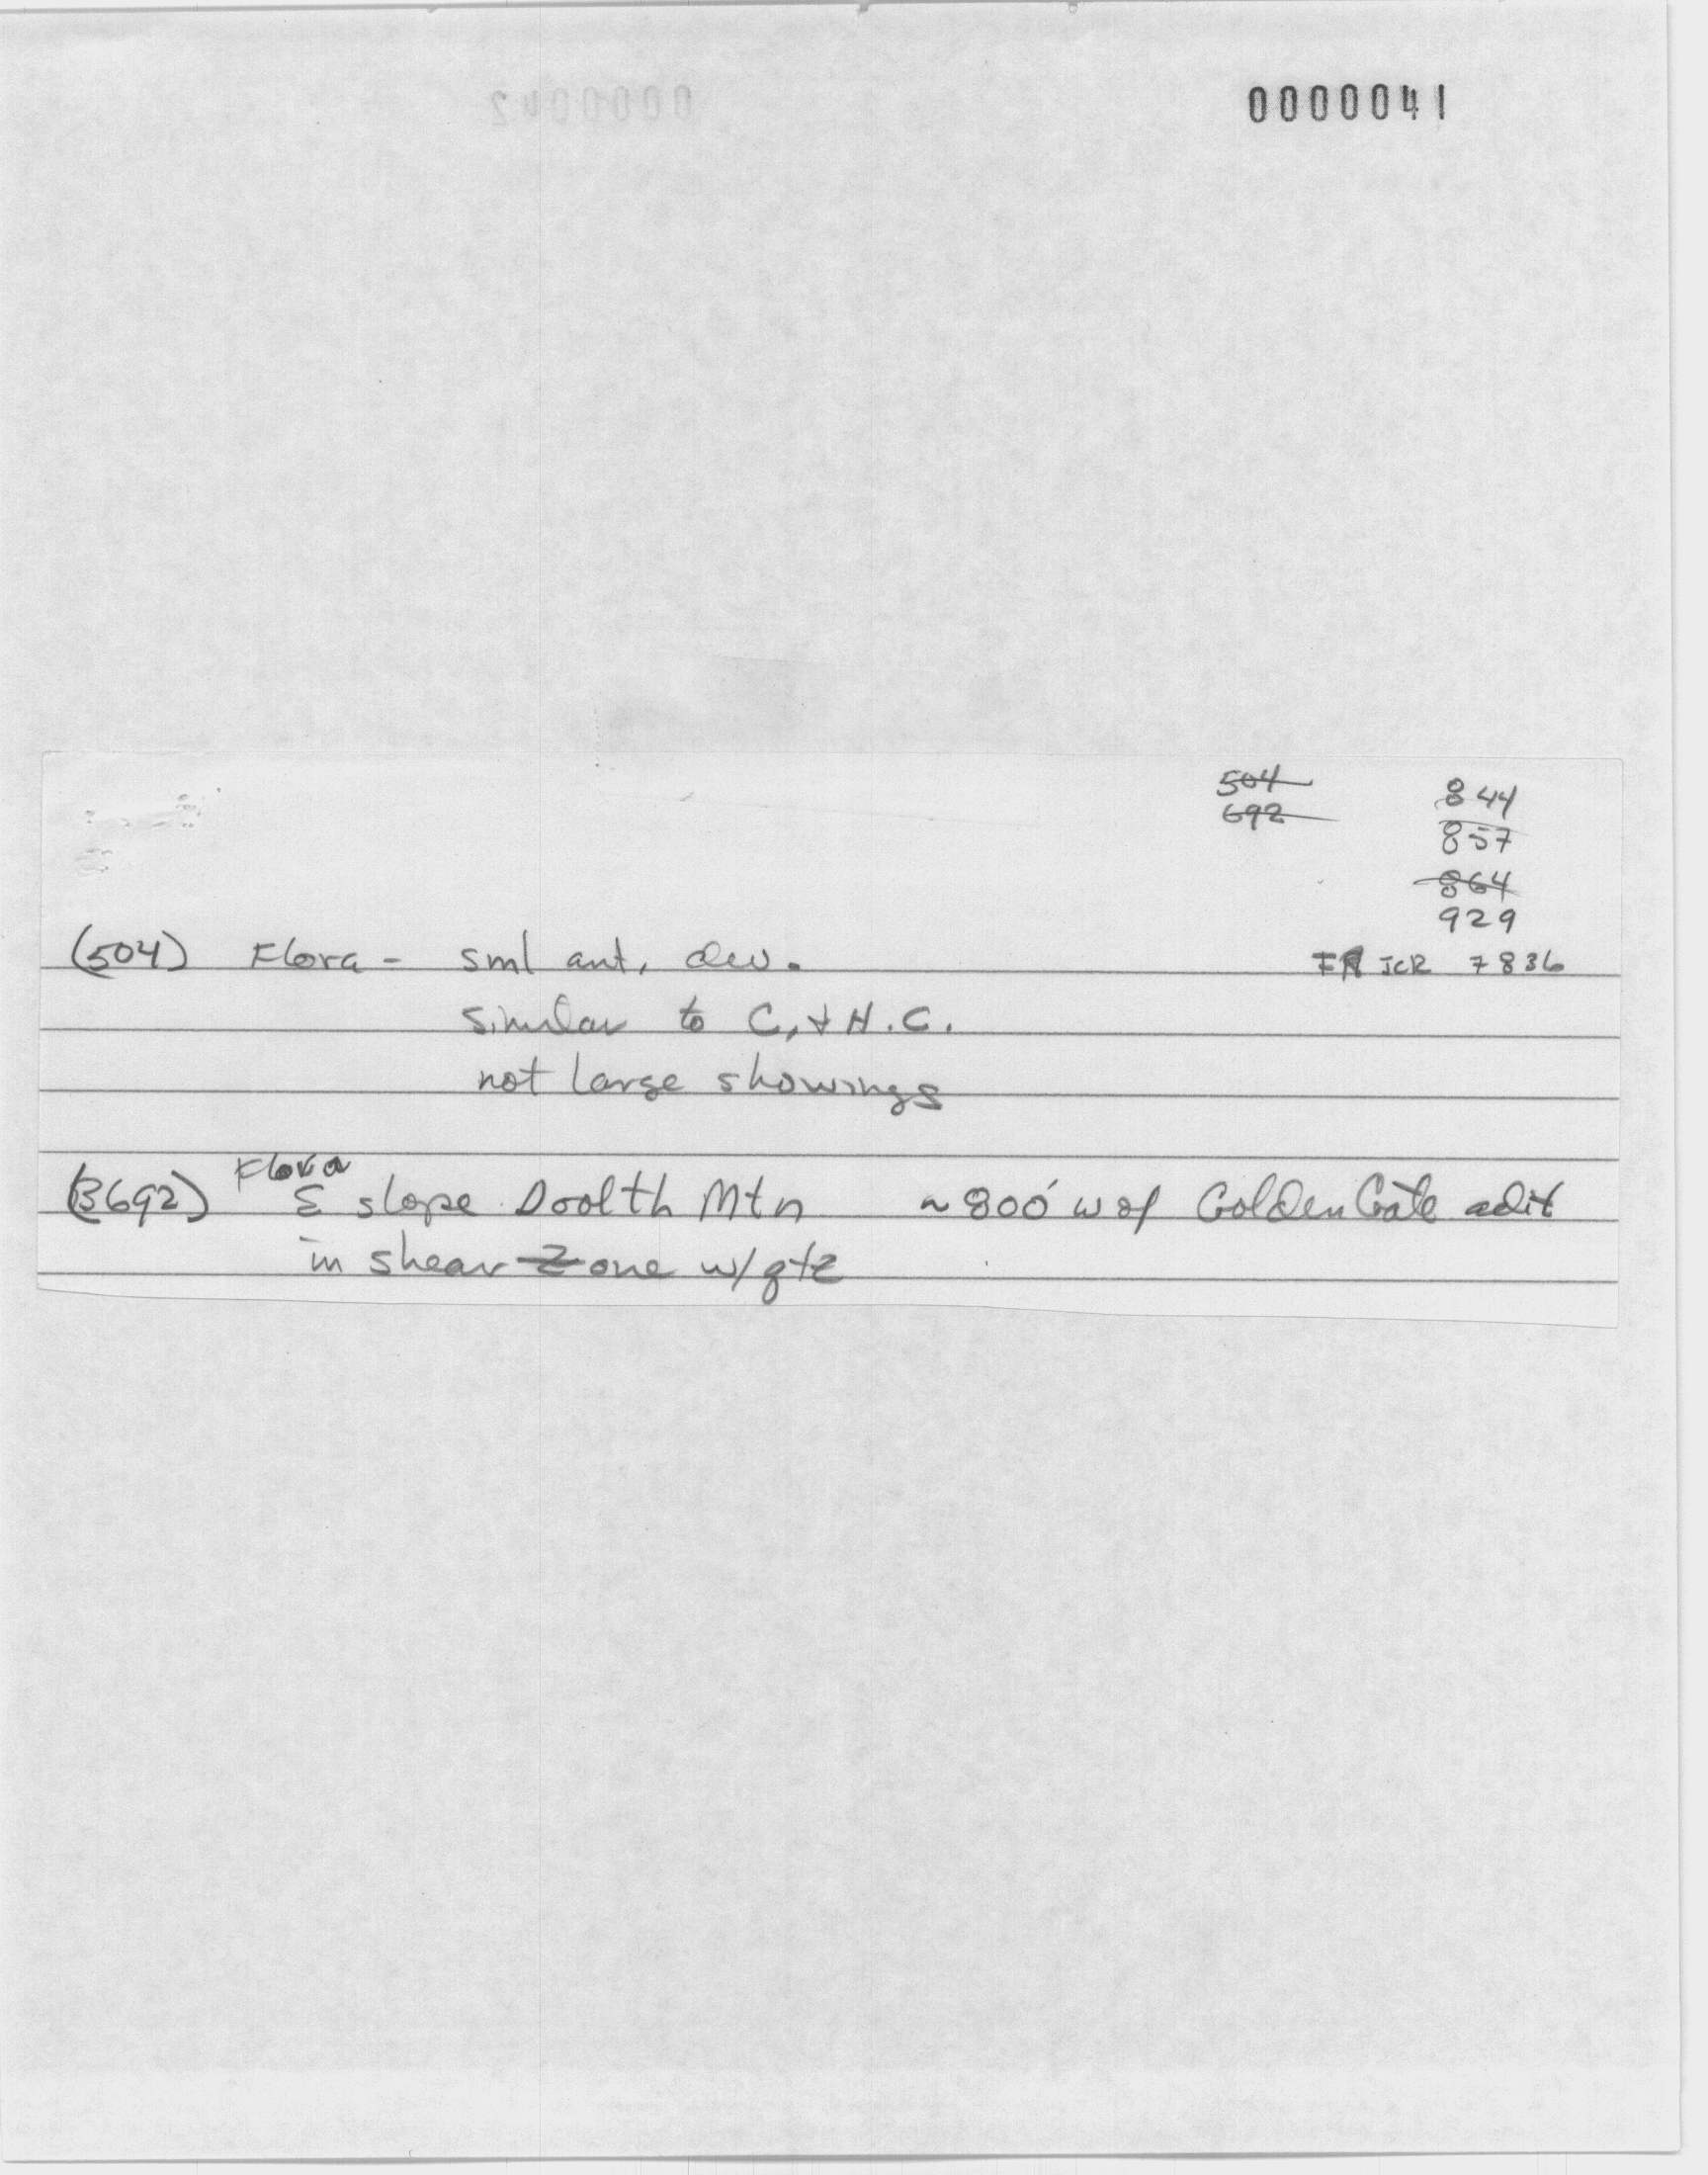 0000041
504
692
844
857
864
929
JCR 7836
(504) Flora - sml amt. dev.
similar to C. & H.C.
not large showings
(3692) Flora
E slope Doolth Mtn ~800' w of Golden Gate adit
in shear zone w/qtz